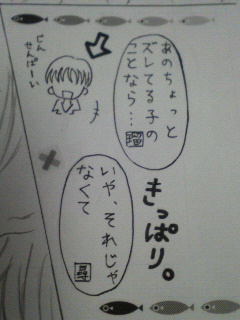 あのちょっと
ズレてる子の
ことなら…
瑠
じん
せんぱーい
きっぱり。
いや、それじゃ
なくて
尋